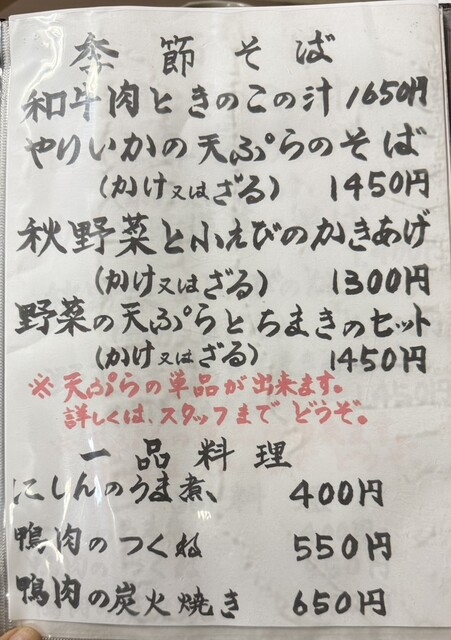 季節そば
和牛肉ときのこの汁 1650円
やりいかの天ぷらのそば
(かけ又はざる) 1450円
秋野菜と小えびのかきあげ
(かけ又はざる) 1300円
野菜の天ぷらとちまきのセット
(かけ又はざる) 1450円
※天ぷらの単品が出来ます。
詳しくは、スタッフまでどうぞ。
一品料理
にしんのうま煮、 400円
鴨肉のつくね 550円
鴨肉の炭火焼き 650円